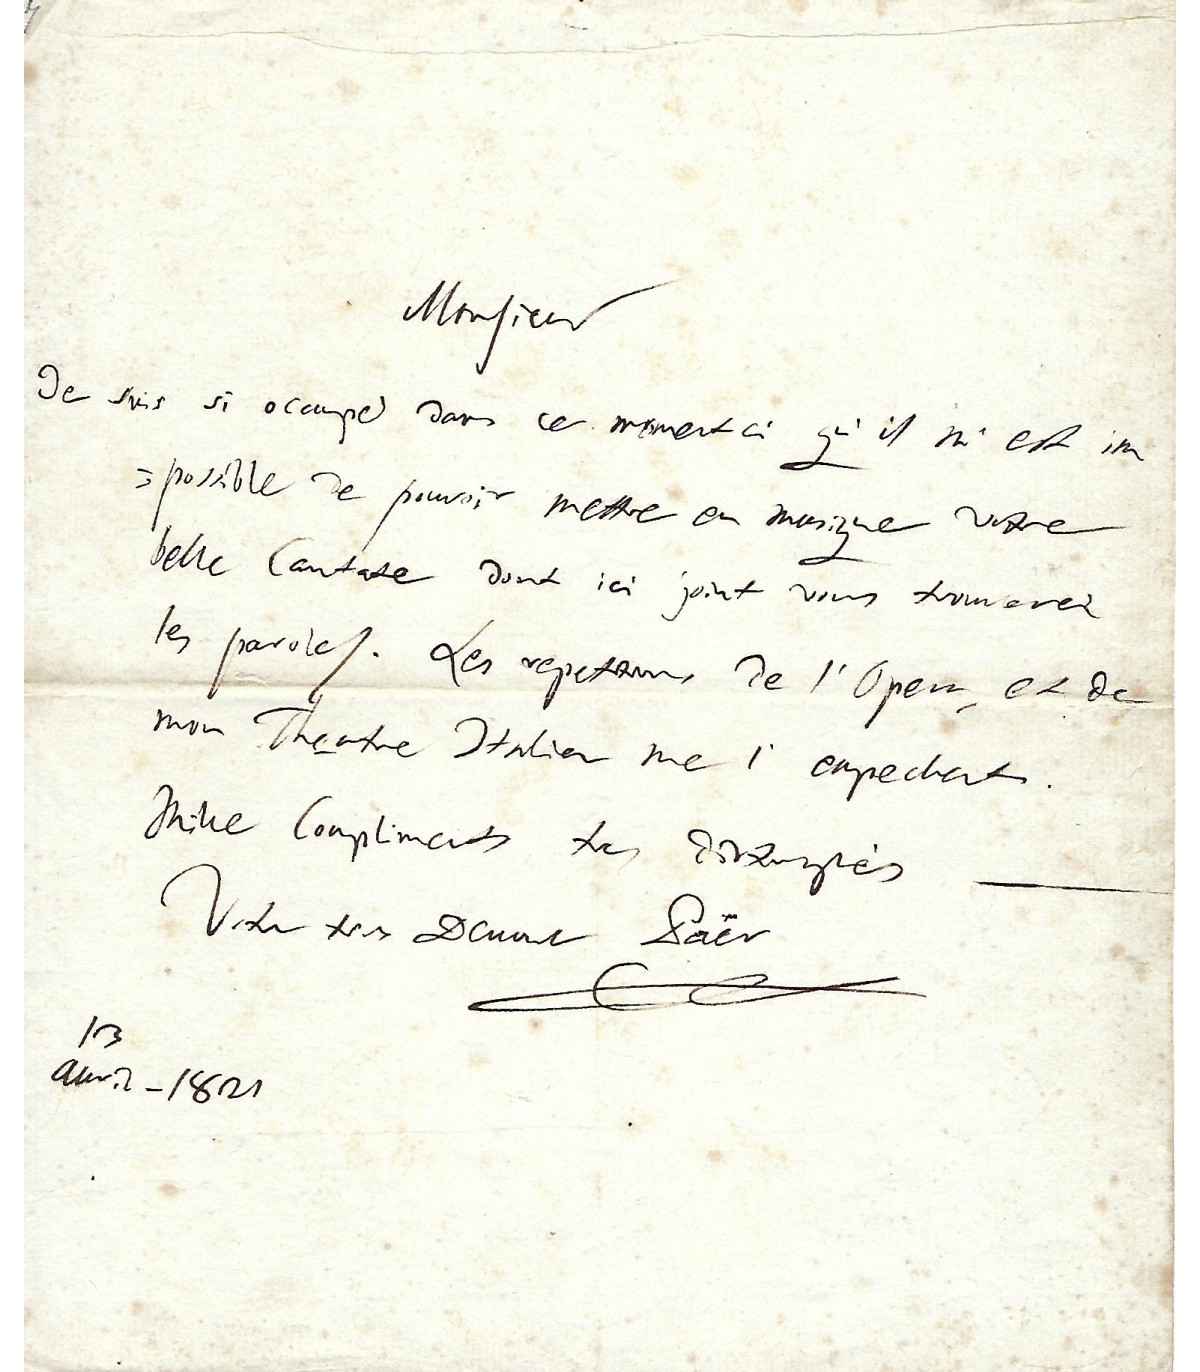 Monsieur
Je suis si occupé dans ce moment ci qu'il m'est im
=possible de pouvoir mettre en musique votre
belle Cantate dont ici joint vous trouverez
les paroles. Les repetitions de l'Opera, et de
mon Theatre Italien me l'empechent.
Mille Compliments tres distingués
Votre tres Devoué Paër
13
avril - 1821